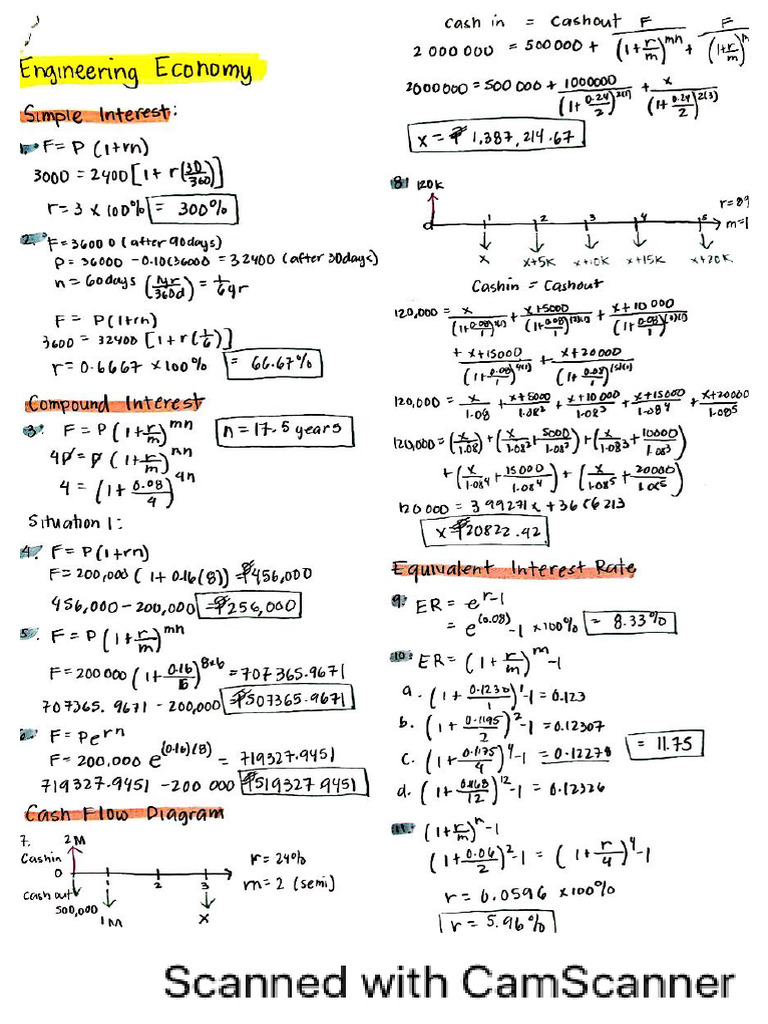 Engineering Economy
Simple Interest:
1. F = P (1+rn)
3000 = 2400 [1 + r(30/360)]
r = 3 x 100% = 300%
2. F = 36000 (after 90days)
P = 36000 - 0.10(36000 = 32400 (after 30days)
n = 60days (1yr/360d) = 1/6 yr
F = P(1+rn)
3600 = 32400 [1 + r(1/6)]
r = 0.6667 x 100% = 66.67%
Compound Interest
3. F = P (1 + r/m)^mn n = 17.5 years
4P = P (1 + r/m)^mn
4 = (1 + 0.08/4)^4n
Situation 1:
4. F = P(1+rn)
F = 200,000 (1 + 0.16(8)) = ₱456,000
456,000 - 200,000 = ₱256,000
5. F = P (1 + r/m)^mn
F = 200 000 (1 + 0.16/)^8x6 = 707 365.9671
707365.9671 - 200,000 = ₱507365.9671
6. F = Pe^rn
F = 200,000 e^(0.16)(8) = 719327.9451
719327.9451 - 200 000 ₱519327.9451
Cash Flow Diagram
7. 2M
Cash in
0 1 2 3
Cash out
500,000 1M X
r = 24%
m = 2 (semi)
cash in = cashout
2 000 000 = 500 000 + F/(1+r/m)^mn + F/(1+r/m)
2000000 = 500 000 + 1000000/(1+0.24/2)^2(1) + x/(1+0.24/2)^2(3)
x = ₱ 1,387,214.67
8. 120K
r=8%
0 1 2 3 4 5 m=1
x x+5K x+10K x+15K x+20K
Cashin = Cashout
120,000 = x/(1+0.08/1)^1(1) + x+5000/(1+0.08/1)^1(2) + x+10 000/(1+0.08/1)^1(3)
+ x+15000/(1+0.08/1)^1(4) + x+20000/(1+0.08/1)^1(5)
120,000 = x/1.08 + x+5000/1.08² + x+10000/1.08³ + x+15000/1.08⁴ + x+20000/1.08⁵
120,000 = (x/1.08) + (x/1.08² + 5000/1.08²) + (x/1.08³ + 10000/1.08³)
+ (x/1.08⁴ + 15000/1.08⁴) + (x/1.08⁵ + 20000/1.08⁵)
x = ₱20822.42
Equivalent Interest Rate
9. ER = e^r-1
= e^(0.08) - 1 x100% = 8.33%
10. ER = (1 + r/m)^m - 1
a. (1 + 0.1230/1)^1 - 1 = 0.123
b. (1 + 0.1195/2)^2 - 1 = 0.12307
c. (1 + 0.1175/4)^4 - 1 = 0.12278 = 11.75
d. (1 + 0.1168/12)^12 - 1 = 0.12326
11. (1 + r/m)^m - 1
(1 + 0.06/2)^2 - 1 = (1 + r/4)^4 - 1
r = 0.0596 x100%
r = 5.96%
Scanned with CamScanner